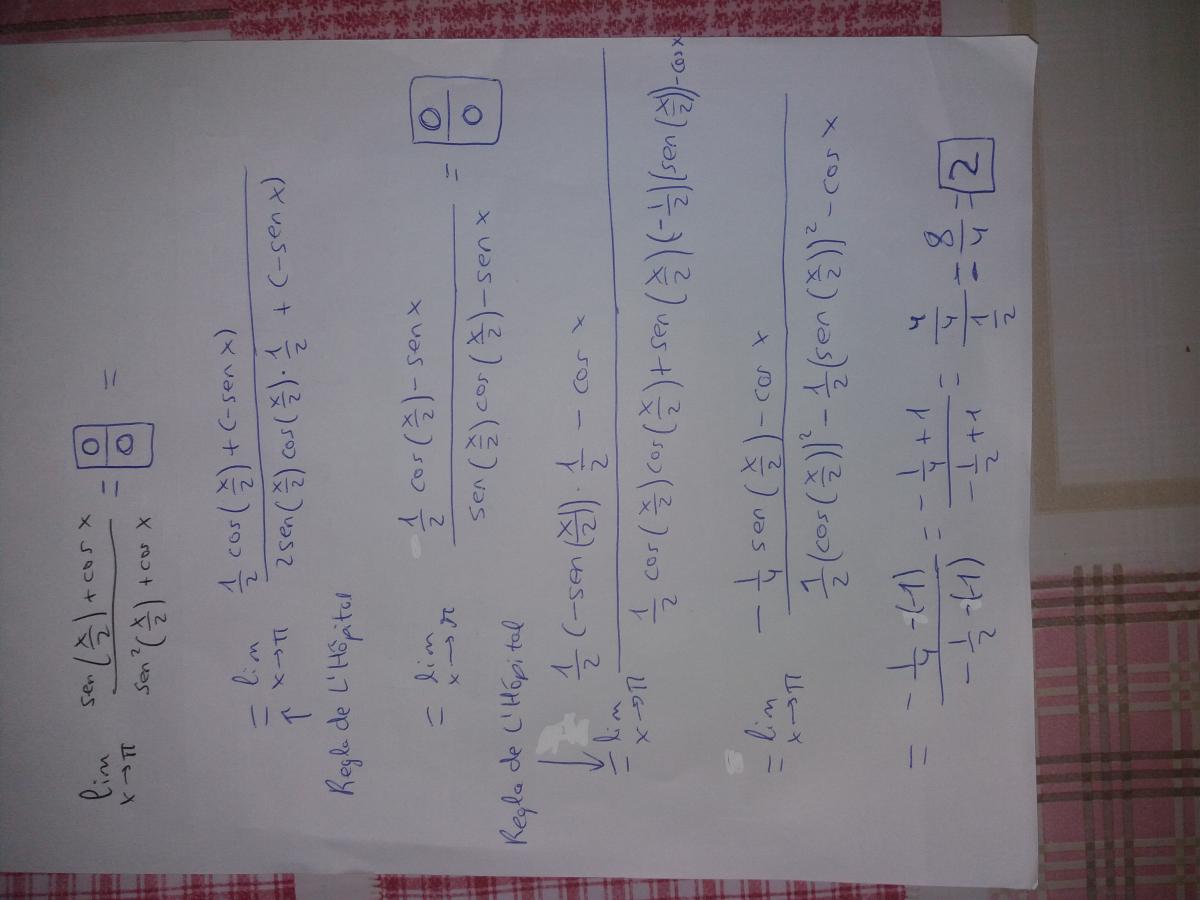 lim x→π (sen(x/2) + cos x) / (sen²(x/2) + cos x) = [0/0] =
= lim x→π (1/2 cos(x/2) + (-sen x)) / (2sen(x/2) cos(x/2) · 1/2 + (-sen x))
↑
Regla de L'Hôpital
= lim x→π (1/2 cos(x/2) - sen x) / (sen(x/2) cos(x/2) - sen x) = [0/0]
Regla de L'Hôpital
↓
= lim x→π (1/2 (-sen(x/2)) · 1/2 - cos x) / (1/2 cos(x/2) cos(x/2) + sen(x/2) (-1/2)(sen(x/2)) - cos x)
= lim x→π (-1/4 sen(x/2) - cos x) / (1/2 (cos(x/2))² - 1/2 (sen(x/2))² - cos x)
= (-1/4 - (-1)) / (-1/2 - (-1)) = (-1/4 + 1) / (-1/2 + 1) = (4/4) / (1/2) = 8/4 = [2]